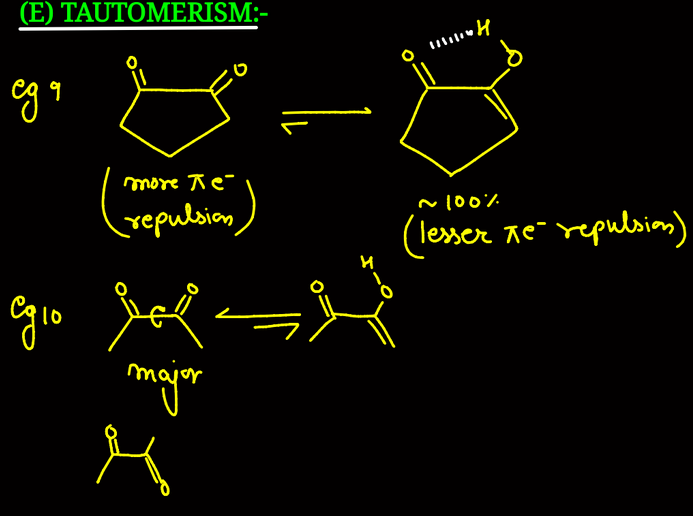 (E) TAUTOMERISM:-
eg 9
O O
O H O
(more π e⁻ repulsion)
~ 100%
(lesser π e⁻ repulsion)
eg 10
O O
O O H
major
O O